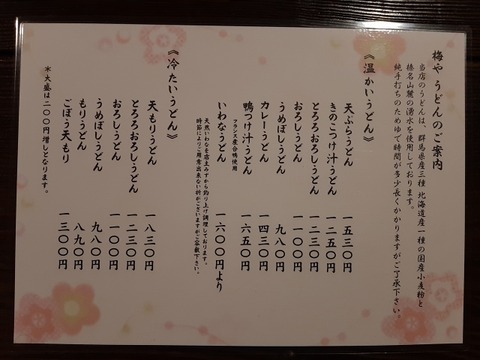 梅や うどんのご案内
当店のうどんは、群馬県産三種 北海道産一種の国産小麦粉と
榛名山麓の湧水を使用しております。
純手打ちのためゆで時間が多少長くかかりますがご了承下さい。
《温かいうどん》
天ぷらうどん 一五三〇円
きのこつけ汁うどん 一二五〇円
とろろおろしうどん 一二三〇円
おろしうどん 一一〇〇円
うめぼしうどん 九八〇円
カレーうどん 一四三〇円
鴨つけ汁うどん 一六五〇円
フランス産合鴨使用
いわなうどん 一六〇〇円より
天然いわなを店主みずから釣り上げ調理しております。
時節によりご用意出来ない時がございますがご容赦下さい。
《冷たいうどん》
天もりうどん 一八三〇円
とろろおろしうどん 一二三〇円
おろしうどん 一一〇〇円
うめぼしうどん 九八〇円
もりうどん 八九〇円
ごぼう天もり 一三〇〇円
＊大盛は二〇〇円増しとなります。